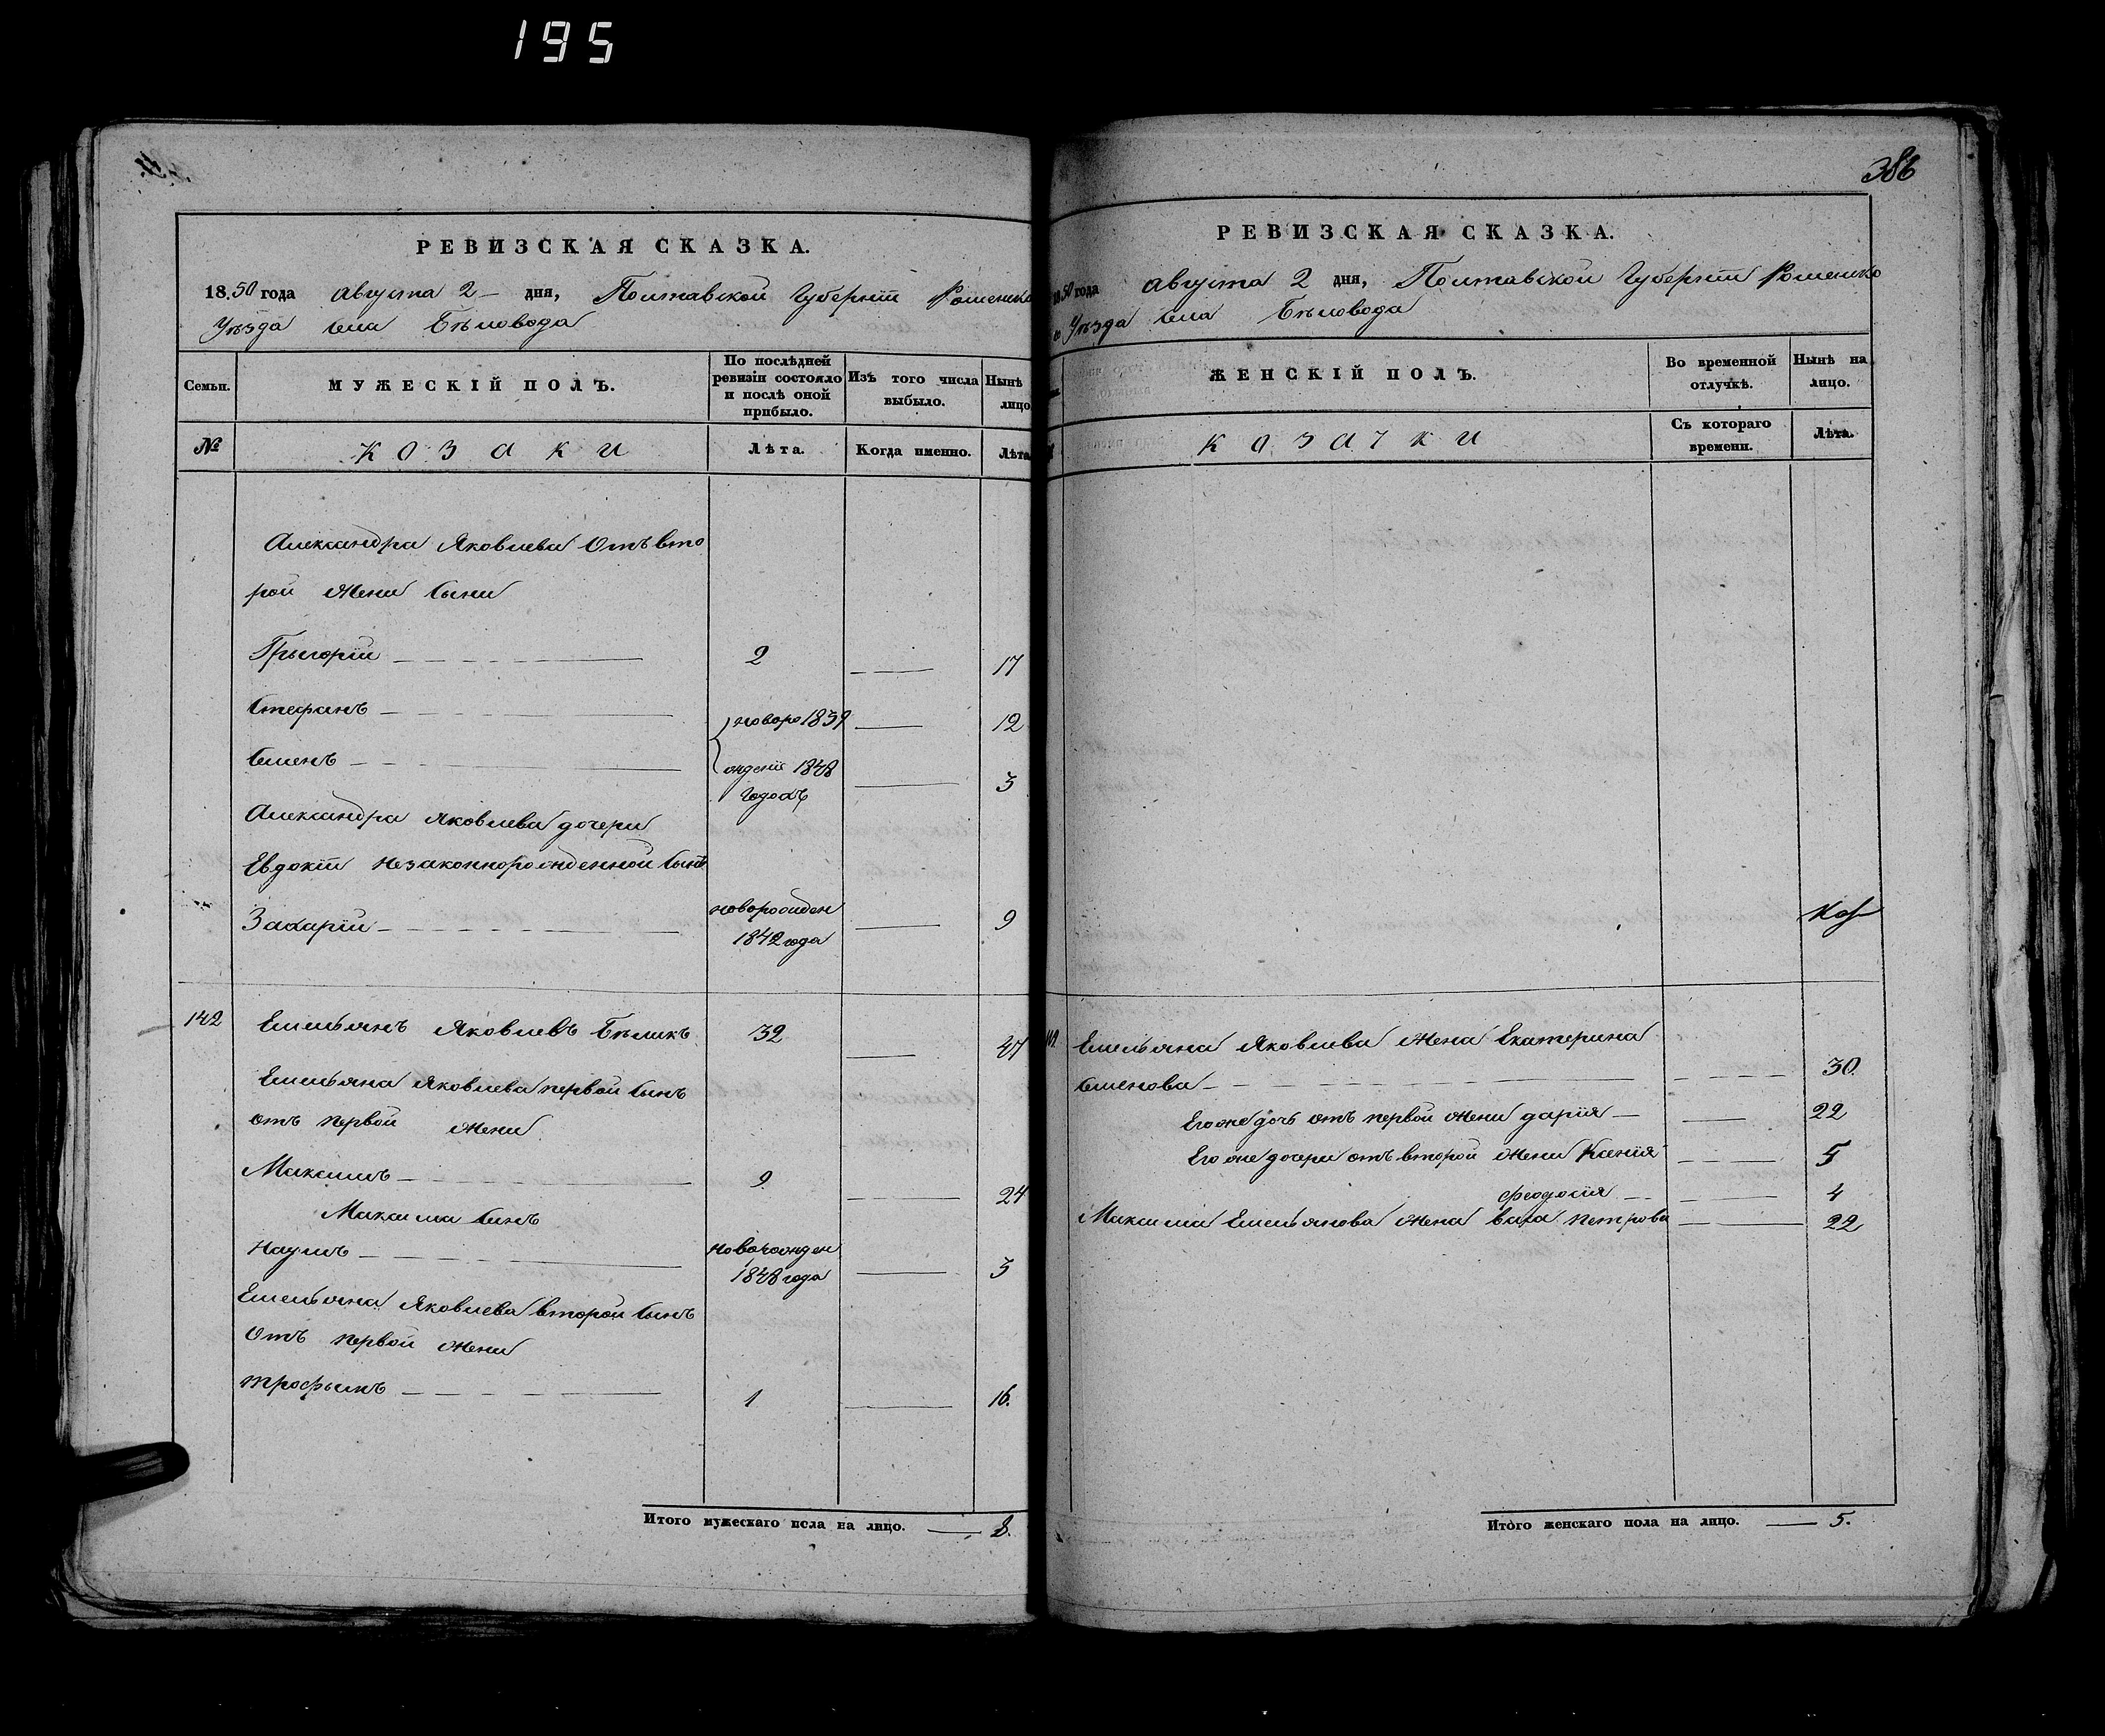 195
РЕВИЗСКАЯ СКАЗКА.
18.50 года Августа 2 дня, Полтавской Губерніи Роменско
Уѣзда Села Бѣловода
Семьи.
МУЖЕСКІЙ ПОЛЪ.
По послѣдней ревизіи состояло и послѣ оной прибыло.
Изъ того числа выбыло.
Нынѣ лицо
№
Козаки
Лѣта.
Когда именно.
Лѣта
Александра Яковлева Отъ вто
рой Жени Сыни
Грыгорій 2 17
Стефанъ новоро 1839 12
Семенъ ждені 1848 3
Годохъ
Александра Яковлева дочери
Евдокіи Незаконнорожденной Сынъ
Захарій новорожден 9
1842 года
142 Емельянъ Яковлевъ Бѣликъ 32 47
Емельяна Яковлева первой Сынъ
отъ первой Жени
Максимъ 9 24
Максима Синъ
Наумъ новорожден 3
1848 года
Емельяна Яковлева второй Сынъ
Отъ первой Жени
трофымъ 1 16.
Итого мужескаго пола на лицо. 8.
386
РЕВИЗСКАЯ СКАЗКА.
1850 года Августа 2 дня, Полтавской Губерніи Роменско
о Уѣзда Села Бѣловода
ЖЕНСКІЙ ПОЛЪ.
Во временной отлучкѣ.
Нынѣ на лицо.
Козачки
Съ котораго времени.
Лѣта.
Емельяна Яковлева Жена Екатерина
Семенова 30.
Его же дочь отъ первой Жени дарія 22
Его же дочери отъ второй Жени Ксенія 5
феодосія 4
Максима Емельянова Жена Васа Петрова 22
Итого женскаго пола на лицо. 5.